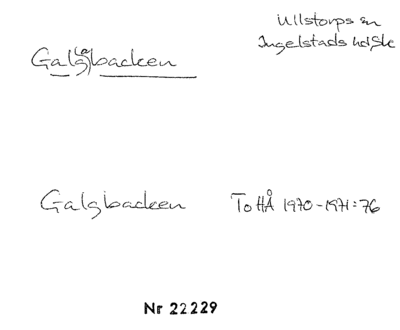 Ullstorps sn
Ingelstads hd Sk
Galg(la)backen
Galgbacken ToHÅ 1970-1971:76
Nr 22229